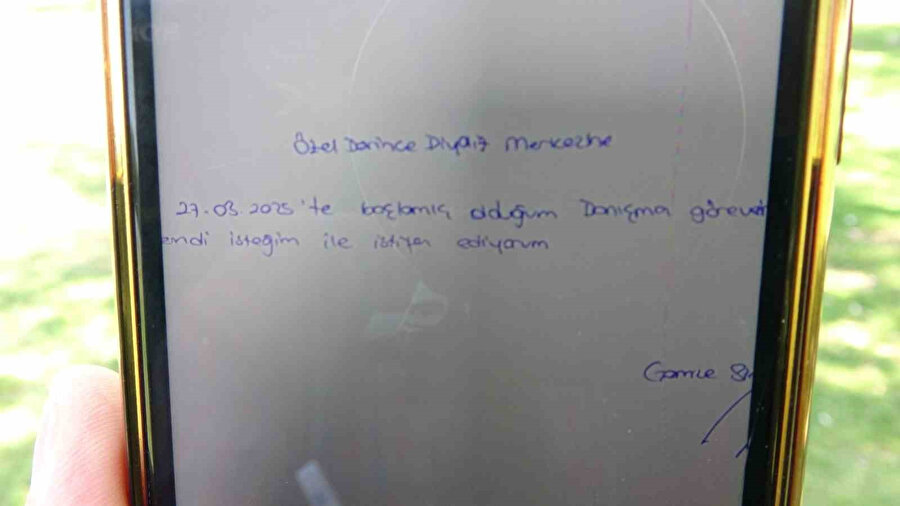 Özel Derince Diyaliz Merkezine
27.03.2025'te başlamış olduğum Danışma görevin
endi isteğim ile istifa ediyorum
Gamze